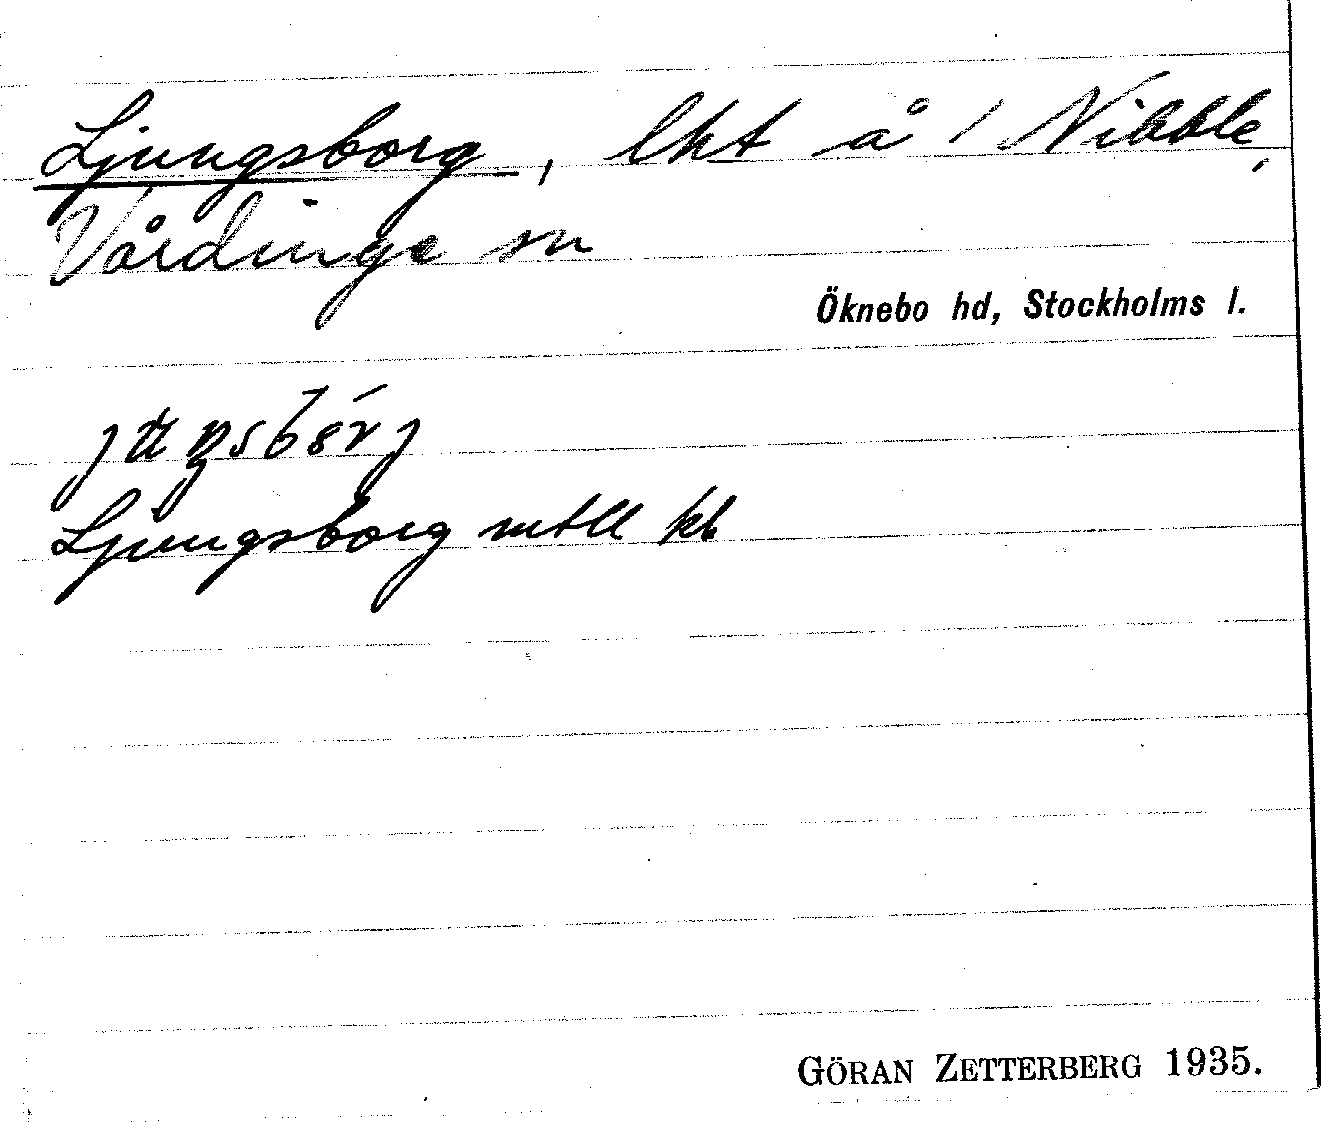 Ljungsborg, lht å 1 Nibble,
Vårdinge sn
Öknebo hd, Stockholms l.
Ljungsborg mtll kb
GÖRAN ZETTERBERG 1935.